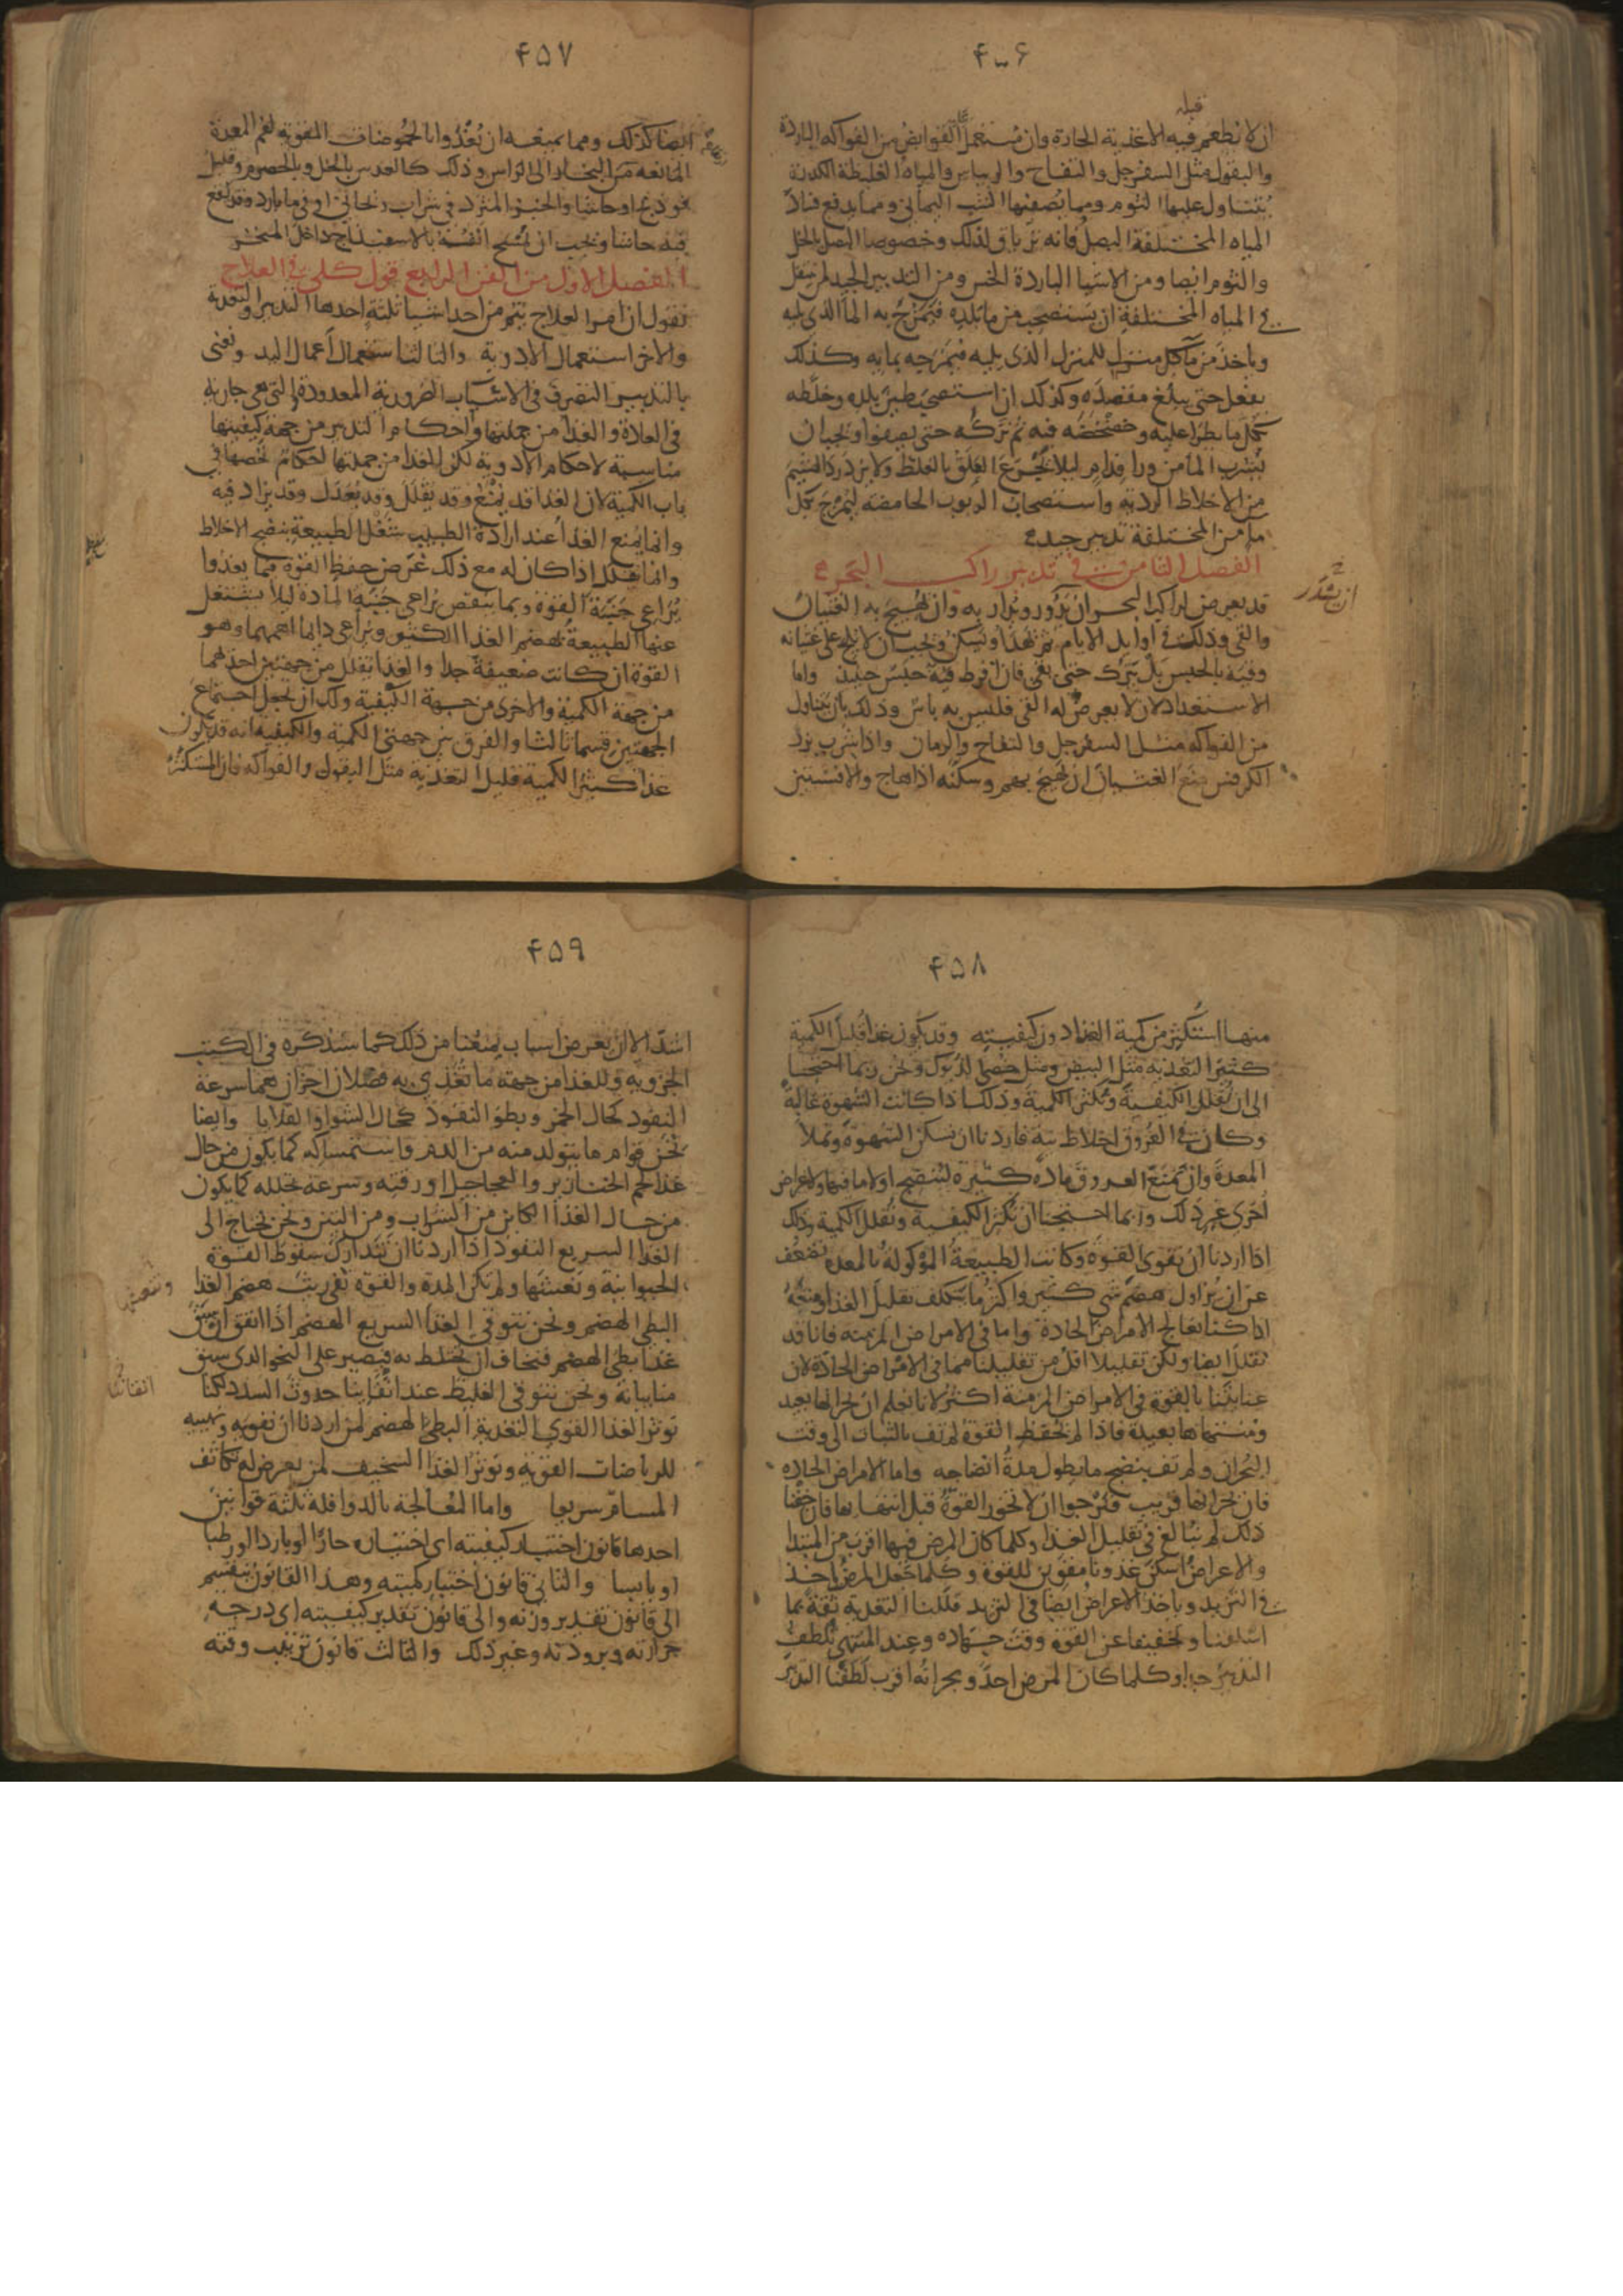 ۴۵۶
قبله
ان لا تطعم فيه الاغذية الحارة وان يستعمل القوابض من الفواكه الباردة
والبقول مثل السفرجل والتفاح والريباس والمياه الغليظة الكدرة
يتناول عليها الثوم ومما يصفيها الشب اليماني ومما يدفع فساد
المياه المختلفة البصل فانه ترياق لذلك وخصوصا البصل بالخل
والثوم ايضا ومن الاشيا الباردة الخس ومن التدبير الجيد لمن ينتقل
في المياه المختلفة ان يستصحب من ما بلده فيمزج به الما الذي يليه
وياخذ من ما كل منزل للمنزل الذي يليه فيمزجه بمايه وكذلك
يفعل حتى يبلغ مقصده وكذلك ان استصحب طين بلده وخلطه
بكل ما يطرا عليه وخضخضه فيه ثم تركه حتى يصفوا ويجب ان
يشرب الما من ورا فدام ليلا يجرع العلق بالغلط ولا يزدرد الهشيم
من الاخلاط الردية واستصحاب الربوب الحامضة ليمزج بكل
ما من المختلفة تدبير جيد
الفصل الثامن في تدبير راكب البحر
قد يعرض لراكب البحر ان يدور ويدار به وان يهيج به الغثيان
والقي وذلك في اوايل الايام ثم يهدا ويسكن ويجب ان لا يلح على غثيانه
وقيه بالحبس بل يترك حتى يقي فان افرط فيه حبس حينيذ واما
الاستعداد لان لا يعرض له القي فليس به باس وذلك بان يتناول
من الفواكه مثل السفرجل والتفاح والرمان واذا شرب بزر
الكرفس منع الغثيان ان يهيج بهم وسكنه اذا هاج والافسنتين
ان يقدر
۴۵۷
ايضا كذلك ومما يمنعه ان يغذوا بالحموضات المقوية لفم المعدة
المانعة من البخار الى الراس وذلك كالعدس بالخل وبالحصرم وقليل
فودنج او حاشا والخبز المثرد في شراب ريحاني او في ما بارد وقد يقع
فيه حاشا ويجب ان يمسح انفسه بالاسفيداج داخل المنخر
الفصل الاول من الفن الرابع قول كلي في العلاج
نقول ان امر العلاج يتم من احد اشيا ثلثة احدها التدبير والتغذية
والاخر استعمال الادوية والثالث استعمال اعمال اليد ونعني
بالتدبير التصرف في الاسباب الضرورية المعدودة التي هي جارية
في العادة والغذا من جملتها واحكام التدبير من جهة كيفيتها
مناسبة لاحكام الادوية لكن للغذا من جملتها احكام تخصها في
باب الكمية لان الغذا قد يمنع وقد يقلل وقد يعدل وقد يزاد فيه
وانما يمنع الغذا عند ارادة الطبيب شغل الطبيعة بنضج الاخلاط
وانما يقلل اذا كان له مع ذلك غرض حفظ القوة فيما يغذوا
يراعى جنبة القوة وبما ينقص يراعى جنبة المادة ليلا يشتغل
عنها الطبيعة بهضم الغذا الكثير ويراعى دايما اهمهما وهو
القوة ان كانت ضعيفة جدا والغذا يقلل من جهتين احدهما
من جهة الكمية والاخرى من جهة الكيفية ولك ان تجعل اجتماع
الجهتين قسما ثالثا والفرق بين جهتي الكمية والكيفية انه قد يكون
غذا كثير الكمية قليل التغذية مثل البقول والفواكه فان المستكثر
۴۵۸
منها استكثر من كمية الغذا دون كيفيته وقد يكون غذا قليل الكمية
كثير التغذية مثل البيض ومثل خصى الديوك ونحن ربما احتجنا
الى ان نقلل الكيفية ونكثر الكمية وذلك اذا كانت الشهوة غالبة
وكان في العروق اخلاط نية فاردنا ان نسكن الشهوة وتملا
المعدة وان نمنع العروق مادة كثيرة لينضج اولا ما فيها ولاغراض
اخرى غير ذلك وربما احتجنا ان نكثر الكيفية ونقلل الكمية وذلك
اذا اردنا ان نقوى القوة وكانت الطبيعة الموكولة بالمعدة تضعف
عن ان تزاول هضم شي كثير واكثر ما نتكلف تقليل الغذا ومنعه
اذا كنا نعالج الامراض الحادة واما في الامراض المزمنة فانا قد
نقلل ايضا ولكن تقليلا اقل من تقليلنا مما في الامراض الحادة لان
عنايتنا بالقوة في الامراض المزمنة اكثر لانا نعلم ان بحرانها بعيد
ومنتهاها بعيد فاذا لم تحفظ القوة لم تف بالثبات الى وقت
البحران ولم تف بنضج ما يطول مدة انضاجه واما الامراض الحادة
فان بحرانها قريب ونرجوا ان لا تخور القوة قبل انتهايها فان خفنا
ذلك لم نبالغ في تقليل الغذا وكلما كان المرض فيها اقرب من المبتدا
والاعراض اسكن غذونا مقوين للقوة وكلما جعل المرض ياخذ
في التزيد وياخذ الاعراض ايضا في التزيد قللنا التغذية ثقة بما
اسلفنا وتخفيفا عن القوة وقت جهاده وعند المنتهى نلطف
التدبير جدا وكلما كان المرض احد وبحرانه اقرب لطفنا التدبير
۴۵۹
اشد الا ان يعرض اسباب يمنعنا من ذلك كما سنذكره في الكتب
الجزوية وللغذا من جهة ما تغذي به فضلان اخران هما سرعة
النفوذ كحال الخمر وبطو النفوذ كحال الشوا والقلايا وايضا
نحن قوام ما يتولد منه من الدم واستمساكه كما يكون من حال
غذا لحم الخنازير والعجاجيل او رقته وسرعة تحلله كما يكون
من حال الغذا الكاين من الشراب ومن التين ونحن نحتاج الى
الغذا السريع النفوذ اذا اردنا ان نتدارك سقوط القوة
الحيوانية ونعشها ولم تكن المدة والقوة تفي ريث هضم الغذا
البطي الهضم ونحن نتوقى الغذا السريع الهضم اذا اتفق ان سبق
غذا بطي الهضم فنخاف ان يختلط به فيصير على النحو الذي سبق
منا بيانه ونحن نتوقى الغليظ عند اتقاينا حدوث السدد لكنا
نوثر الغذا القوي التغذية البطي الهضم لمن اردنا ان نقويه ونهييه
للرياضات القوية ونوثر الغذا السخيف لمن يعرض له تكاثف
المسام سريعا واما المعالجة بالدوا فله ثلثة قوانين
احدها قانون اختيار كيفيته اي اختيار حارا او باردا او رطبا
او يابسا والثاني قانون اختيار كميته وهذا القانون ينقسم
الى قانون تقدير وزنه والى قانون تقدير كيفيته اي درجة
حرارته وبرودته وغير ذلك والثالث قانون ترتيب وقته